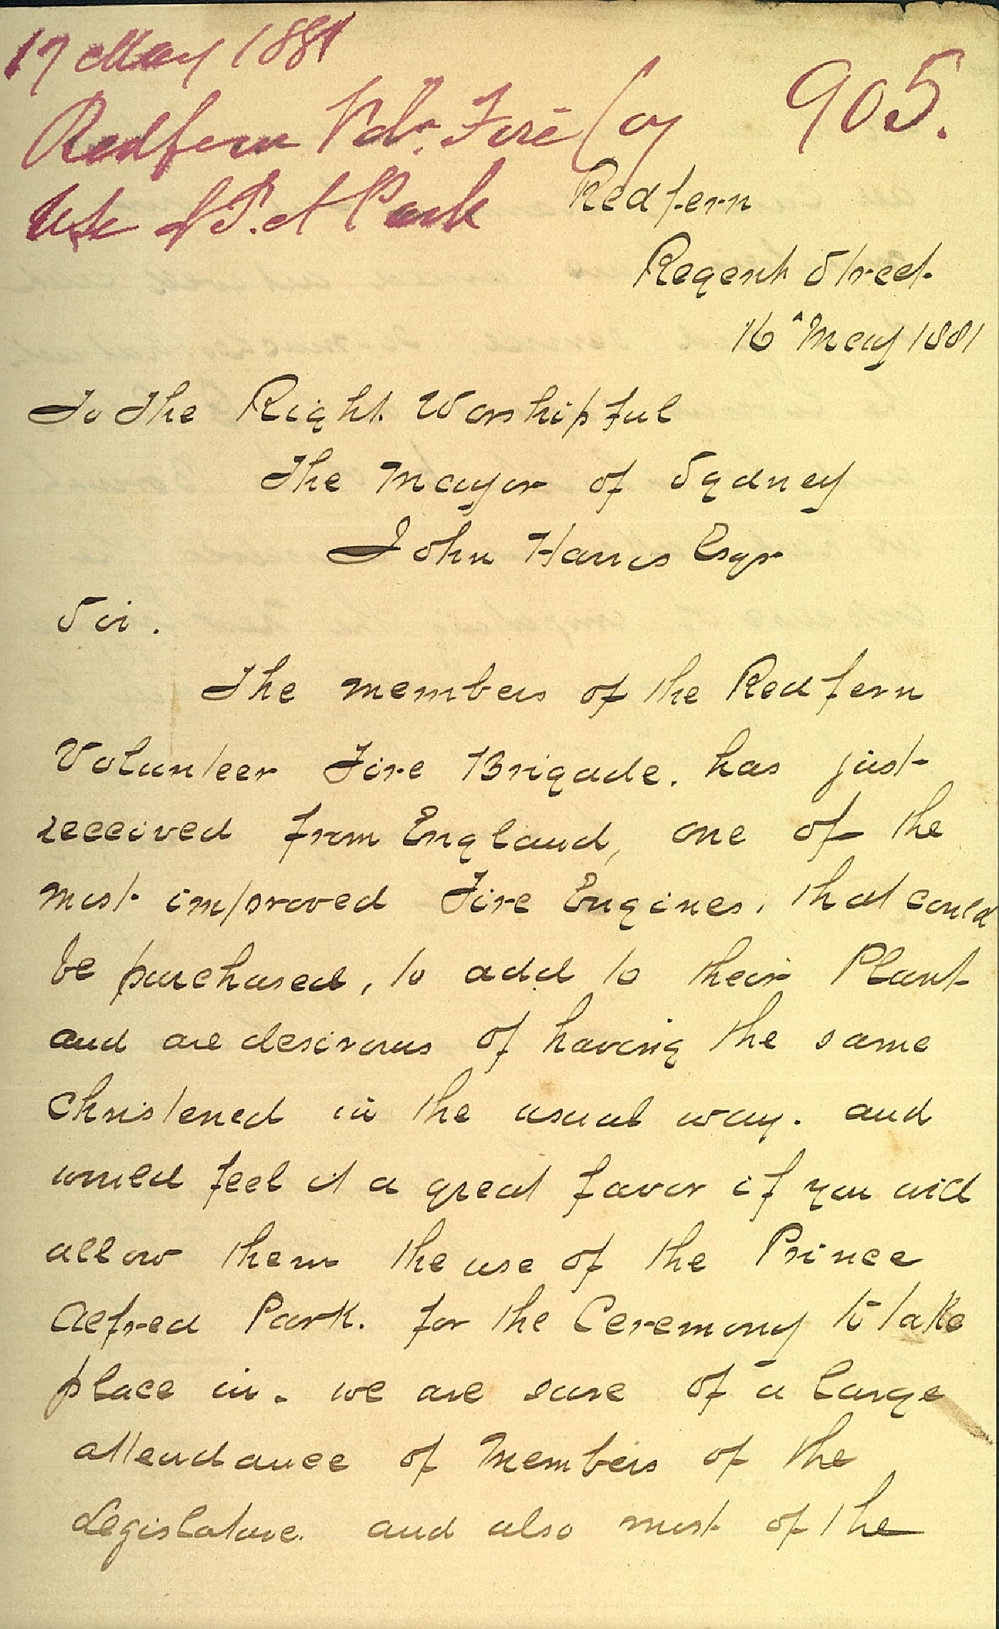 17 May 1881
905.
Redfern Vol. Fire Coy
Use of P. A Park
Redfern
Regent Street
16 May 1881
To The Right Worshipful
The Mayor of Sydney
John Harris Esqr
Sir.
The members of the Redfern
Volunteer Fire Brigade. has just
received from England, one of the
most improved Fire Engines, that could
be purchased, to add to their Plant
and are desirous of having the same
Christened in the usual way. and
would feel it a great favor if you will
allow them the use of the Prince
Alfred Park. for the Ceremony to take
place in. we are sure of a large
attendance of Members of the
Legislature. and also most of the